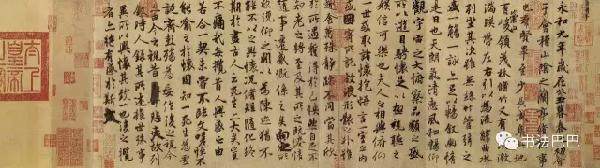 永和九年歲在癸丑暮春之初會
于會稽山陰之蘭亭脩稧事
也羣賢畢至少長咸集此地
有崇領茂林脩竹又有清流激
湍暎帶左右引以為流觴曲水
列坐其次雖無絲竹管弦之
盛一觴一詠亦足以暢敘幽情
是日也天朗氣清惠風和暢仰
觀宇宙之大俯察品類之盛
所以遊目騁懷足以極視聽之
娛信可樂也夫人之相與俯仰
一世或取諸懷抱悟言一室之內
或因寄所託放浪形骸之外雖
趣舍萬殊靜躁不同當其欣
於所遇蹔得於己怏然自足不
知老之將至及其所之既惓情
隨事遷感慨係之矣向之所
欣俛仰之間以為陳迹猶不
能不以之興懷況脩短隨化終
期於盡古人云死生亦大矣豈
不痛哉每攬昔人興感之由
若合一契未嘗不臨文嗟悼不
能喻之於懷固知一死生為虛
誕齊彭殤為妄作後之視今
亦由今之視昔悲夫故列
敘時人錄其所述雖世殊事
異所以興懷其致一也後之攬
者亦將有感於斯文
书法巴巴